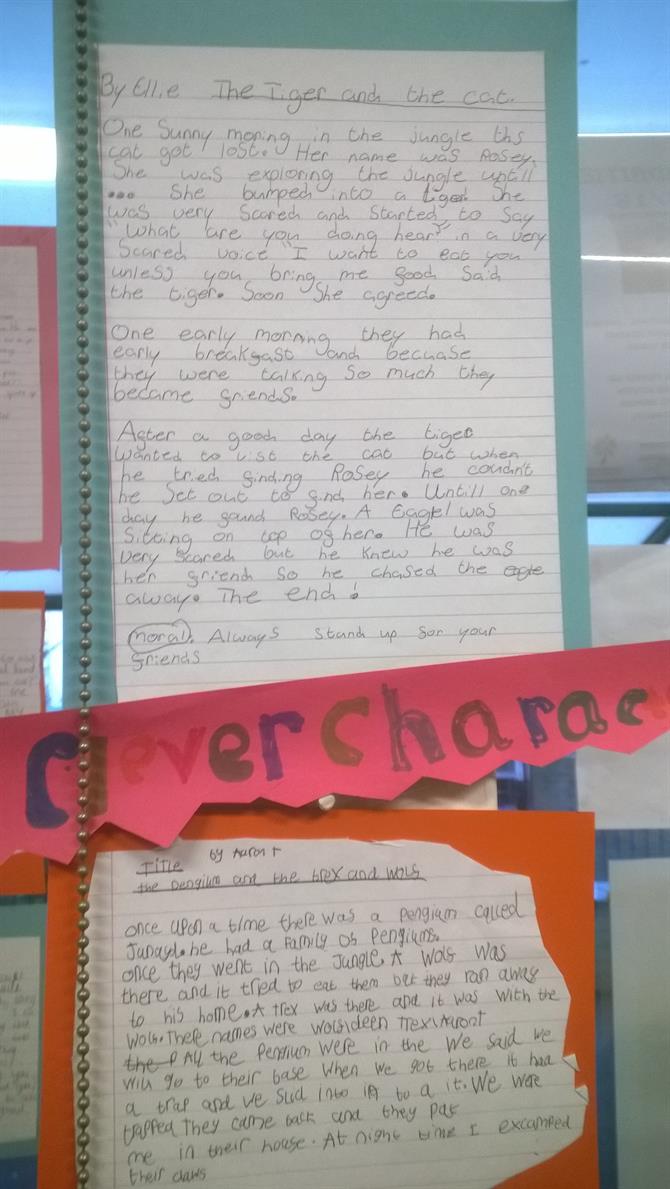 By Ellie The Tiger and the cat.
One Sunny moning in the jungle ths
cat got lost. Her name was Rosey.
She was exploring the jungle uptill
... She bumped into a tiger She
was very Scared and Started to Say
"What are you doing hear" in a very
Scared voice "I want to eat you
unless you bring me good Said
the tiger. Soon She agreed.
One early morning they had
early breakgast and becuase
they were talking so much they
became griends.
Agter a good day the tiger
wanted to vist the cat but when
he tried ginding Rosey he coudn't
he set out to gind her. Untill one
day he gound Rosey. A Eagel was
Sitting on top og her. He was
very scared but he knew he was
her griend so he chased the eagle
away. The end!
moral. Always stand up sor your
griends
Clever Charac
Title by Aaron T
the pengium and the trex and wols
once upon a time there was a pengium called
he had a Family os Pengiums.
once they went in the Jungle. A wols was
there and it tried to eat them but they ran away
to his home. A trex was there and it was with the
wols. There names were
the P All the Pengium were in the We said we
will go to their base when we got there it had
a trap and we slid into to a it. We were
trapped They came back and they pat
me in their house. At night time I excamped
their claws